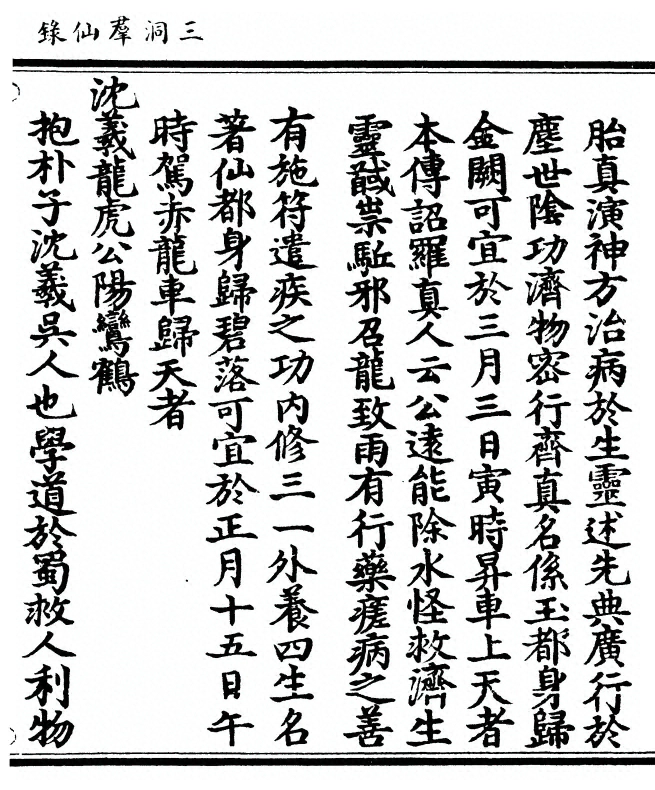 三洞羣仙錄
胎真演神方治病於生靈述先典廣行於
塵世陰功濟物密行齊真名係玉都身歸
金闕可宜於三月三日寅時昇車上天者
本傳詔羅真人云公遠能除水怪救濟生
靈馘祟駈邪召龍致雨有行藥瘥病之善
有施符遣疾之功內修三一外養四生名
著仙都身歸碧落可宜於正月十五日午
時駕赤龍車歸天者
沈羲龍虎公陽鸞鶴
抱朴子沈羲吳人也學道於蜀救人利物